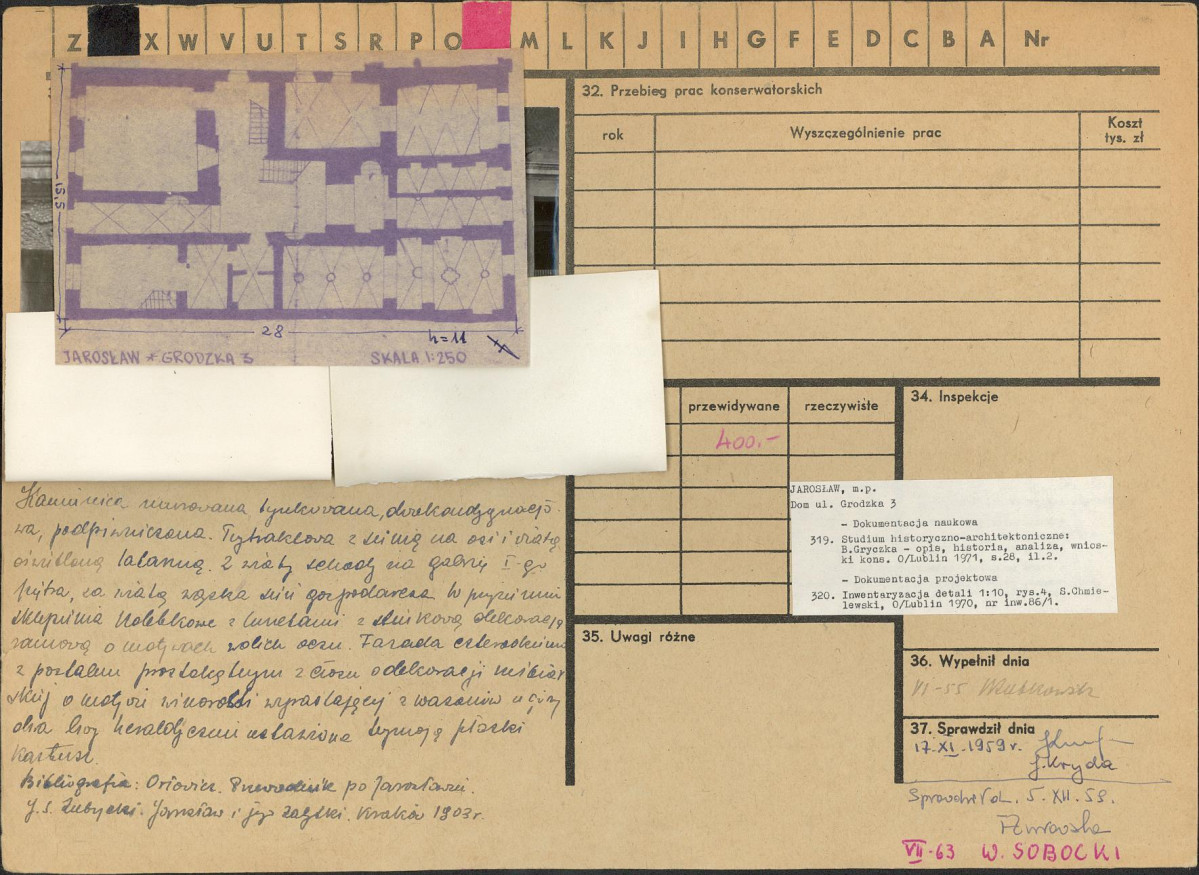 Z X W V U T S R P O M L K J I H G F E D C B A Nr
32. Przebieg prac konserwatorskich
rok Wyszczególnienie prac Koszt tys. zł
15,5
28
h=11
JAROSŁAW * GRODZKA 3 SKALA 1:250
przewidywane rzeczywiste
400.-
34. Inspekcje
JAROSŁAW, m.p.
Dom ul. Grodzka 3
- Dokumentacja naukowa
319. Studium historyczno-architektoniczne:
B.Gryczka - opis, historia, analiza, wnios-
ki kons. O/Lublin 1971, s.28, il.2.
- Dokumentacja projektowa
320. Inwentaryzacja detali 1:10, rys.4, S.Chmie-
lewski, O/Lublin 1970, nr inw.86/1.
Kamienica murowana tynkowana, dwukondygnacjo-
wa, podpiwniczona. Trytraktowa z sienią na osi i wiatą
oświetloną latarnią. Z wiaty schody na galerię I-go
piętra, za wiatą wąska sień gospodarcza. W przyziemiu
sklepienia kolebkowe z lunetami z stiukową dekoracją
ramową o motywach wolich oczu. Fasada czteroosiowa
z portalem prostokątnym z ciosu o dekoracji
o motywie winorośli wyrastającej z wazonów u góry
dwa lwy heraldycznie ustawione trzymają płaski
kartusz.
Bibliografia: Orłowicz. Przewodnik po Jarosławiu.
J.S. Zubrzycki. Jarosław i jego zabytki. Kraków 1903r.
35. Uwagi różne
36. Wypełnił dnia
VI-55
37. Sprawdził dnia
17.XI.1959r.
J.Kryda
Sprawdził 5.XII.59.
VII-63 W. SOBOCKI